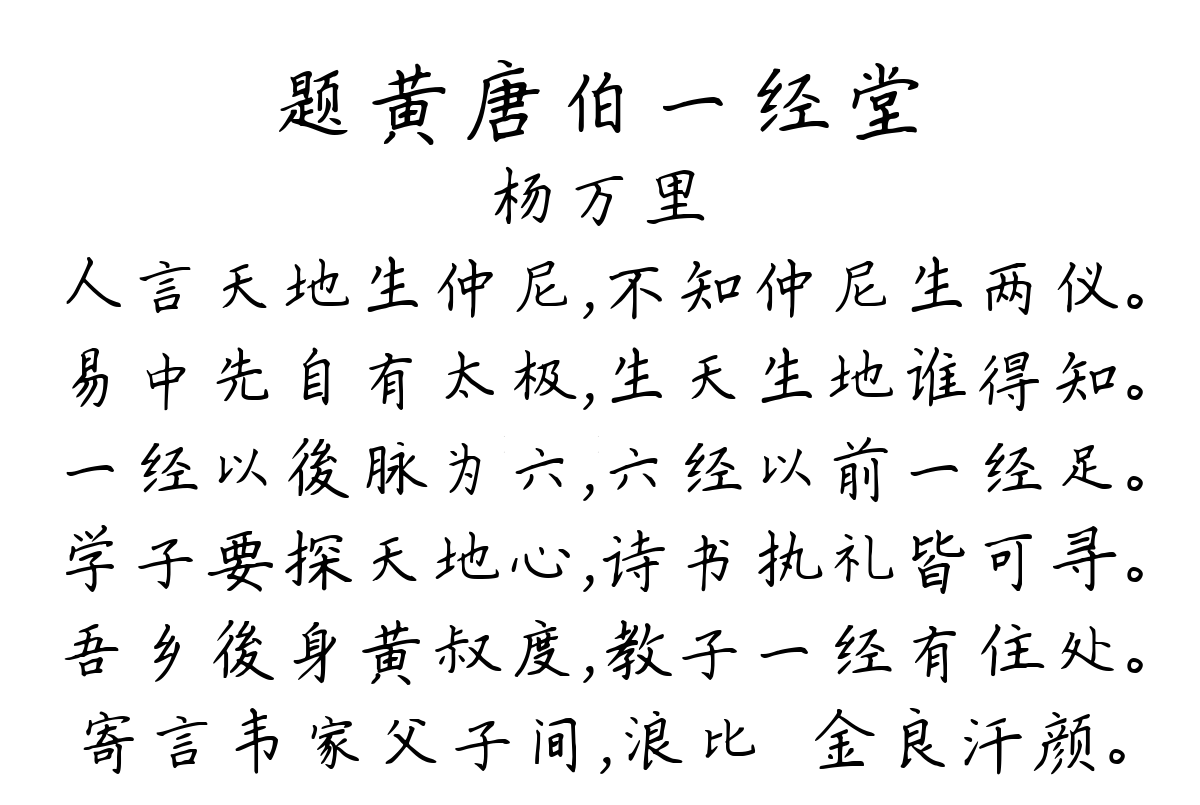 题黄唐伯一经堂
杨万里
人言天地生仲尼,不知仲尼生两仪。
易中先自有太极,生天生地谁得知。
一经以後脉为六,六经以前一经足。
学子要探天地心,诗书执礼皆可寻。
吾乡後身黄叔度,教子一经有住处。
寄言韦家父子间,浪比 金良汗颜。